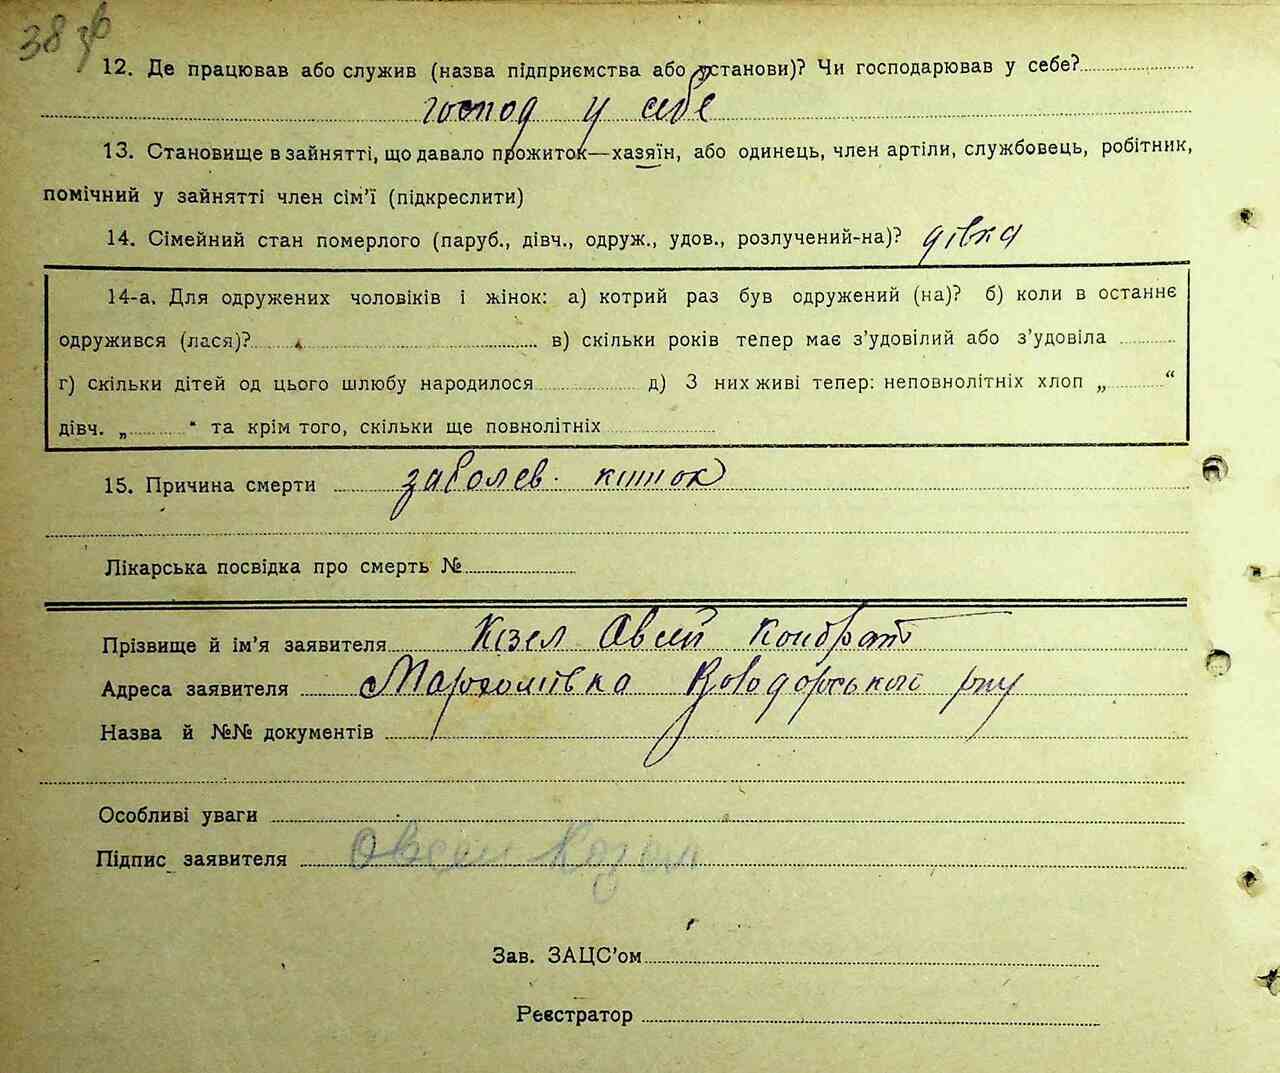 38 зв
12. Де працював або служив (назва підприємства або установи)? Чи господарював у себе?
господ у себе
13. Становище в зайнятті, що давало прожиток—хазяїн, або одинець, член артіли, службовець, робітник,
помічний у зайнятті член сім'ї (підкреслити)
14. Сімейний стан померлого (паруб., дівч., одруж., удов., розлучений-на)? дівка
14-а. Для одружених чоловіків і жінок: а) котрий раз був одружений (на)? б) коли в останнє
одружився (лася)? в) скільки років тепер має з'удовілий або з'удовіла
г) скільки дітей од цього шлюбу народилося д) З них живі тепер: неповнолітніх хлоп „ “
дівч. „ “ та крім того, скільки ще повнолітніх
15. Причина смерти заболев. кишок
Лікарська посвідка про смерть №
Прізвище й ім'я заявителя Кізел Овсій Кондрат
Адреса заявителя Володарського рну
Назва й №№ документів
Особливі уваги
Підпис заявителя Овсеи
Зав. ЗАЦС'ом
Реєстратор